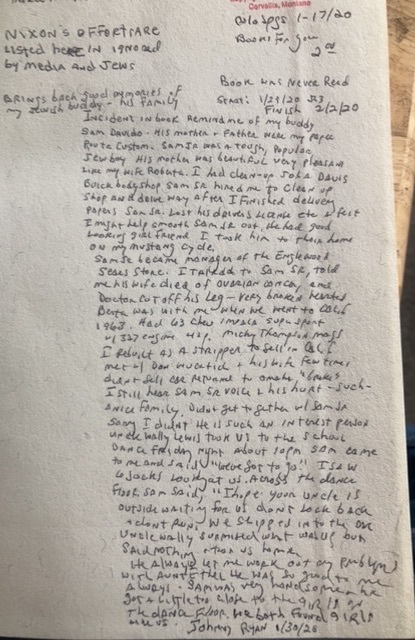 Corvallis, Montana
Colo Spgs 1-17/20
Books For You
2.00
NIXON'S EFFORT ARE
Listed here IN IGNORED
by media AND Jews
Book was Never Read
Start: 1/29/20
Finish 2/2/20
BRINGS back good memories of
my Jewish buddy - his Family
Incident in book Remind me of my buddy
Sam Davido - His mother & Father were my paper
Route Custom. Sam Jr was a tough, Popular
Jewboy His mother was beautiful very pleasant
Like my wife Roberta. I had clean-up John DAVIS
Buick bodyshop Sam Sr hired me to Clean up
Shop and drive way After I Finished delivery
Papers Sam Sr. Lost his drivers License etc & felt
I might help smooth Sam Jr out. He had good
Looking girl Friend I took him to their home
on my mustang cycle.
Sam Sr became manager of the Englewood
Sears Store. I talked to Sam Sr, told
me his wife died of OVARIAN CANCER and
Doctor cut off his Leg - very broken hearted
was with me when we went to CALIF
1963. Had 63 Chev impala super sport
w/ 327 engine 4 sp. Micky Thompson mags
I Rebuilt AS A stripper to sell in CALI
met w/ Don & his wife few times
didn't sell car Returned to omaha "broke"
I still hear Sam Sr voice & his hurt - such
A nice family. Didn't get together w/ Sam Sr
Sorry I didn't He is such an interest person
Uncle Wally Lewis took us to the School
Dance Friday night About 10pm Sam came
to me and said "We've got to go" I saw
6 Jocks Look at us. Across the dance
Floor, Sam said, "I hope your uncle is
outside waiting for us don't Look back
& don't RUN. We slipped into the car
Uncle Wally surmised what was up but
Said nothing & ran us home
He Always let me work out my problems
with Aunt Ethel He was so good to me
Always - Sam was very handsome & he
got a little too close to the girl is on
The dance Floor. We both found girls
Johnny Ryan 1/30/20